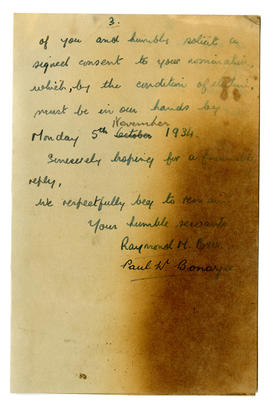 3.
of you and humbly solicit a
signed consent to your nomination
which, by the condition of
must be in our hands by
November
Monday 5th October 1934.
Sincerely hoping for a favourable
reply,
We respectfully beg to remain
Your humble servants
Raymond H.
Paul W.